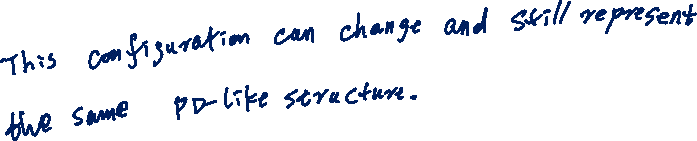 This configuration can change and still represent
the same PD-like structure.